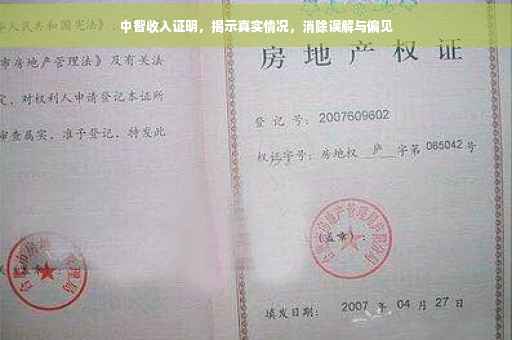 中智收入证明，揭示真实情况，消除误解与偏见
人民共和国宪法》、
市房地产管理法》及有关
定，对权利人申请登记本证所
审查属实，准予登记，特发此
房地产权证
登记号：2007609602
权证字号：房地权庐字第065042号
（盖章）：
填发日期：2007 年 04 月 27 日